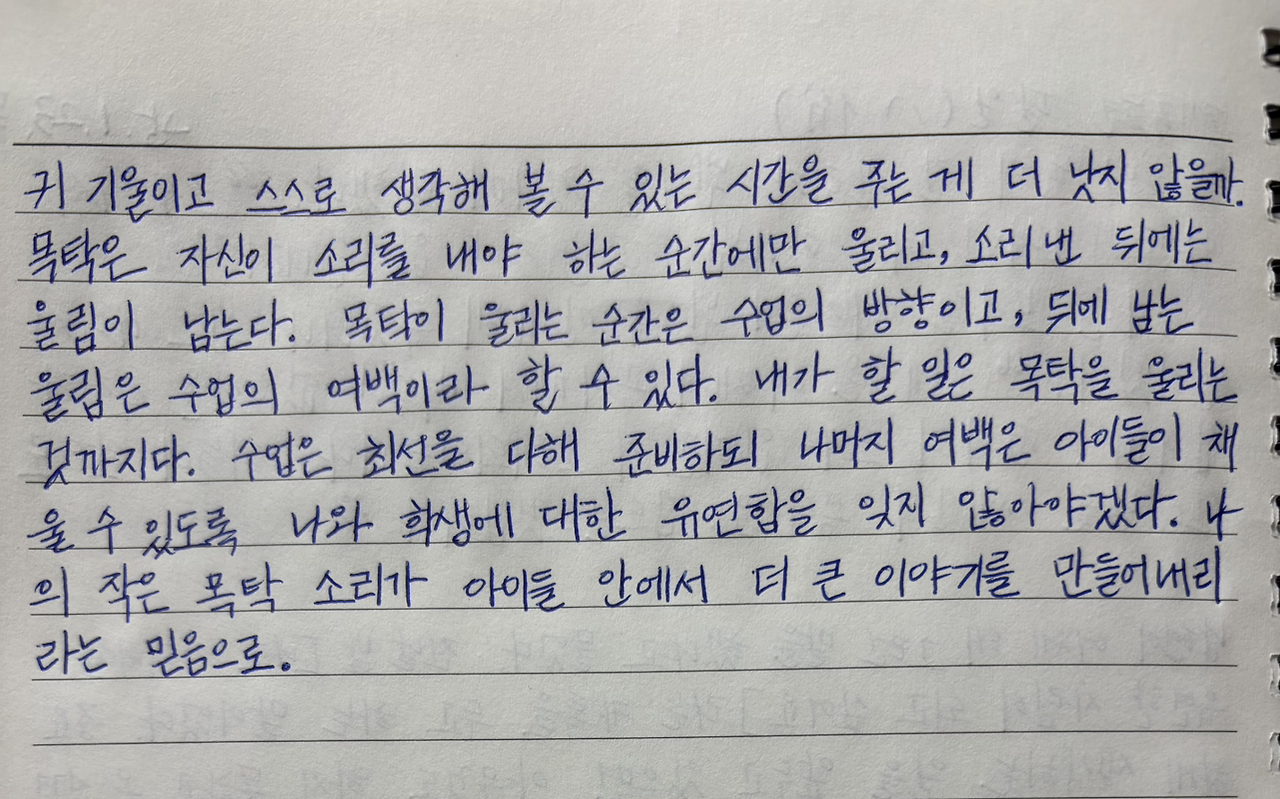 귀 기울이고 스스로 생각해 볼 수 있는 시간을 주는 게 더 낫지 않을까.
목탁은 자신이 소리를 내야 하는 순간에만 울리고, 소리 낸 뒤에는
울림이 남는다. 목탁이 울리는 순간은 수업의 방향이고, 뒤에 남는
울림은 수업의 여백이라 할 수 있다. 내가 할 일은 목탁을 울리는
것까지다. 수업은 최선을 다해 준비하되 나머지 여백은 아이들이 채
울 수 있도록 나와 학생에 대한 유연함을 잊지 않아야겠다. 나
의 작은 목탁 소리가 아이들 안에서 더 큰 이야기를 만들어내리
라는 믿음으로.